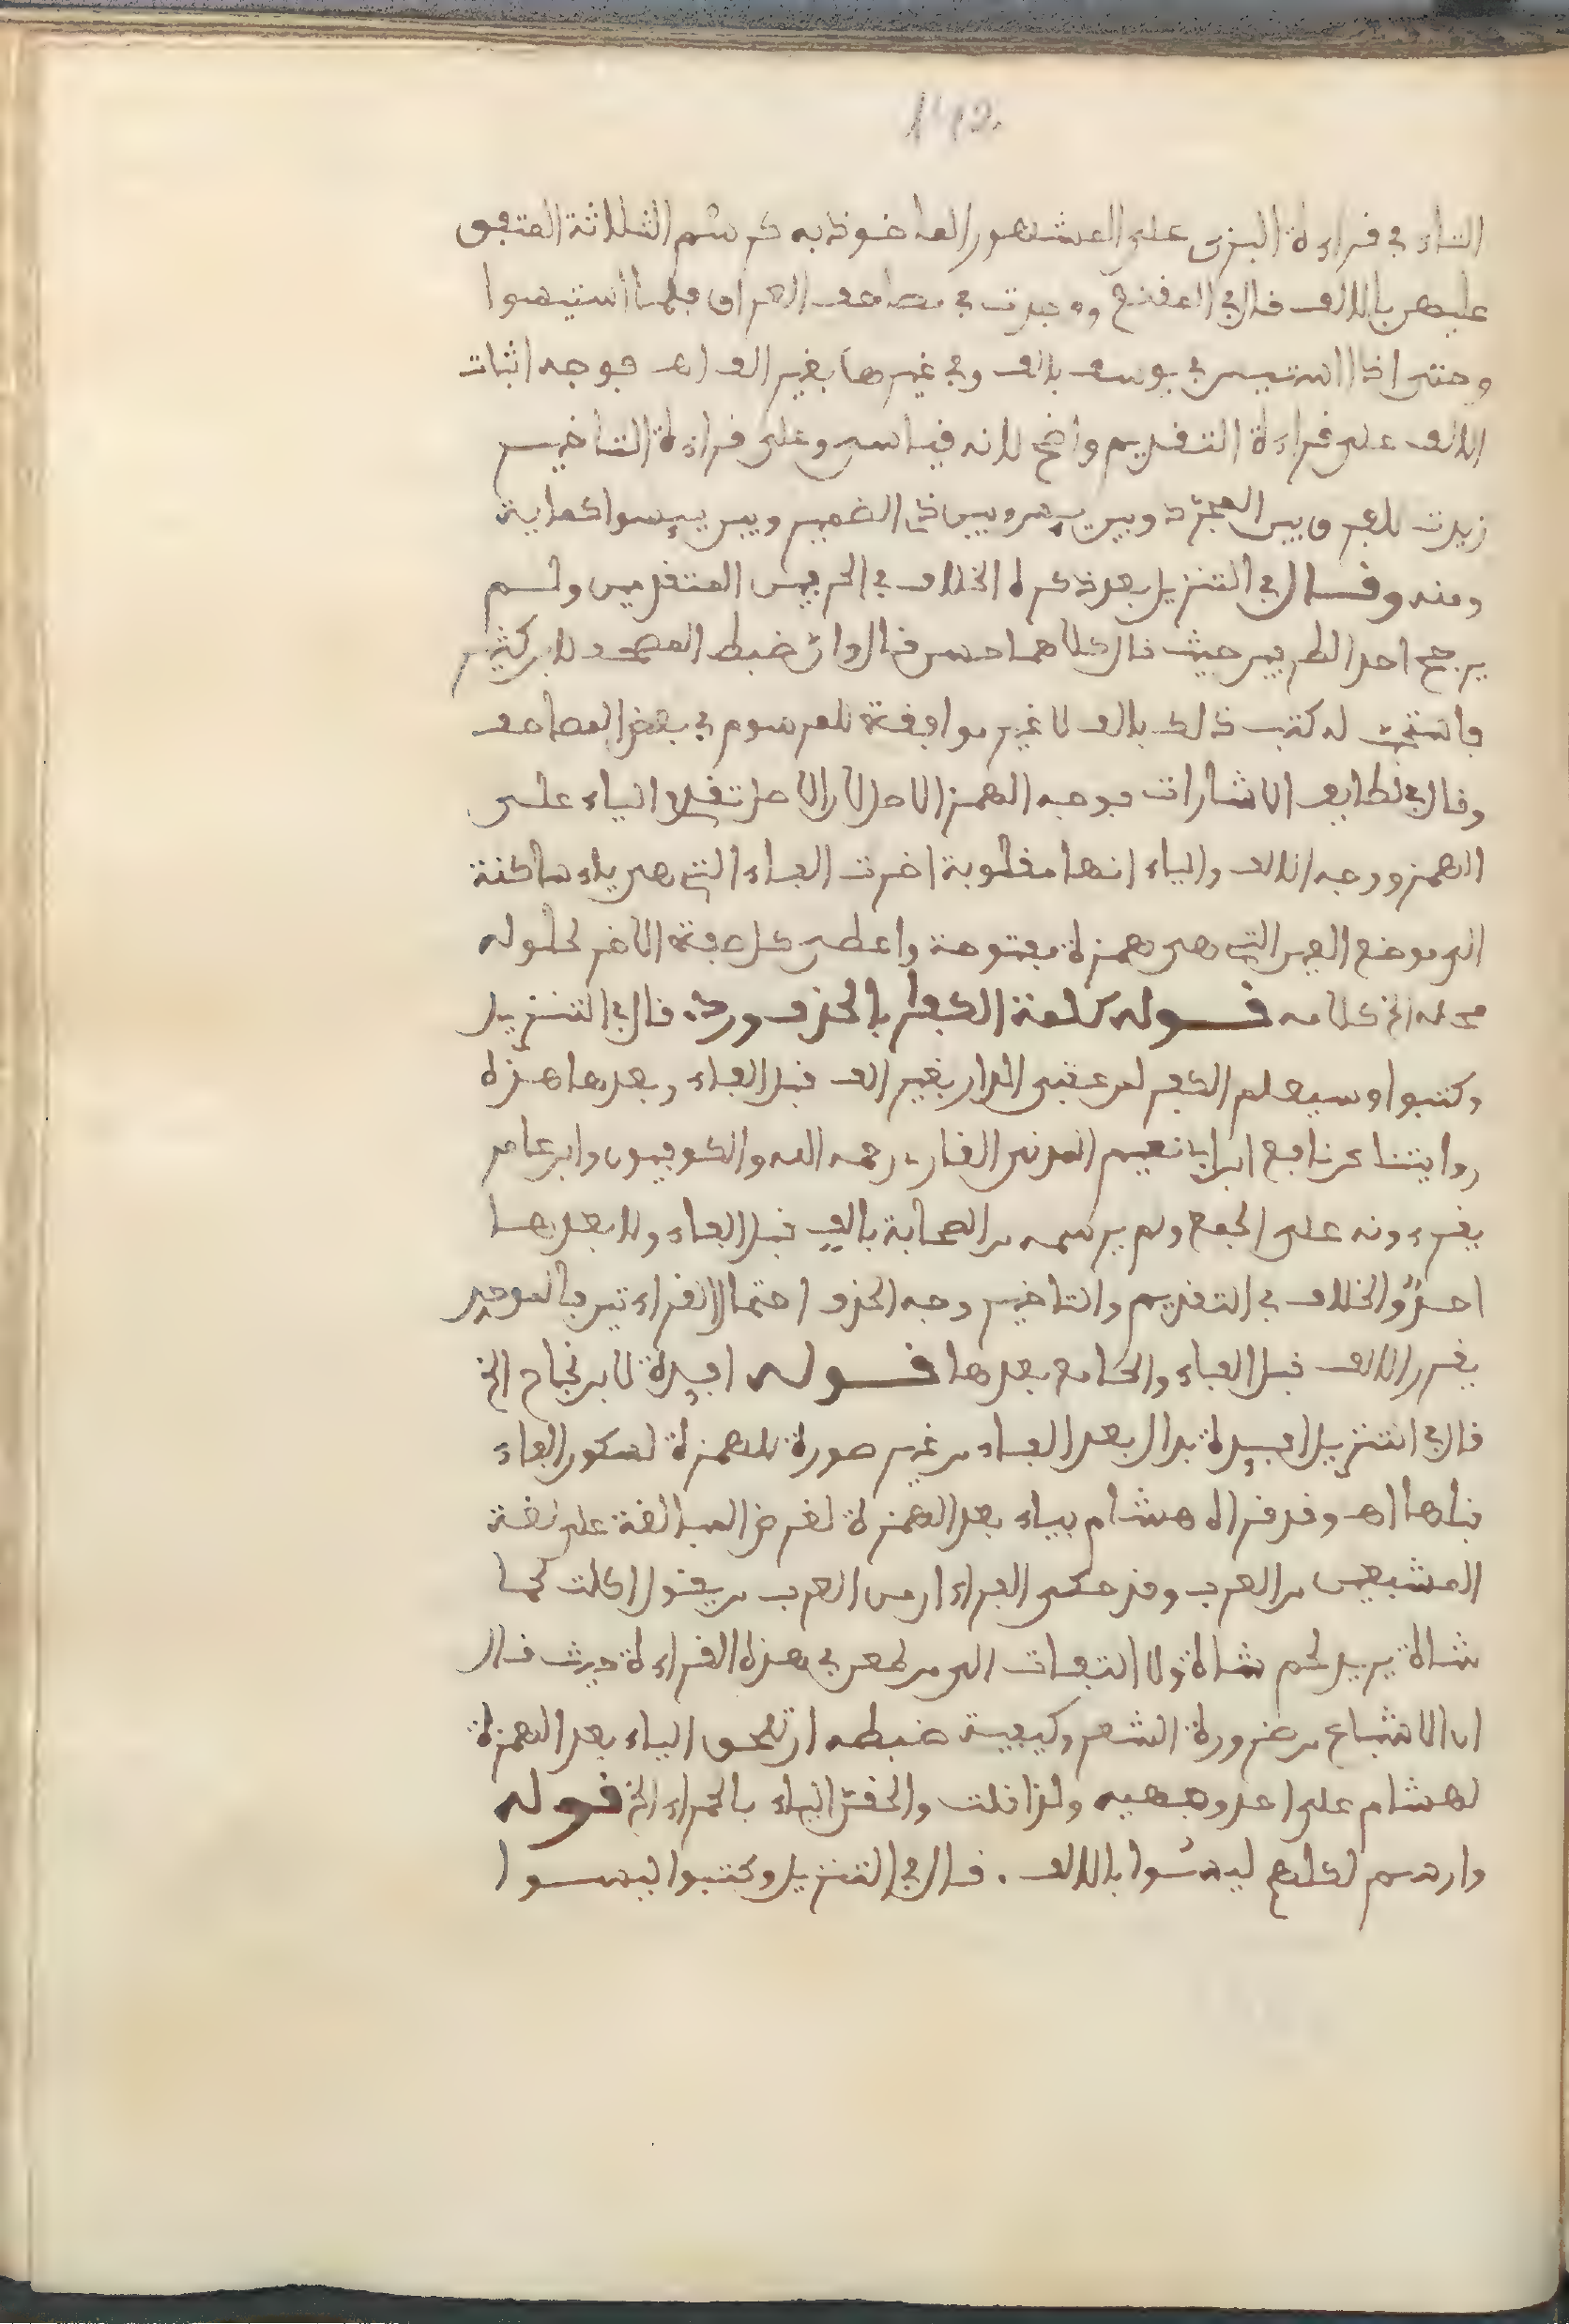 التاء في قراءة البزي على المشهور الماخوذ به كرسم الثلاثة المتفق
عليهن بالالف قال في المقنع ووجدت في مصاحف العراق فلما استيسوا
وحتى اذا استيس في يوسف بالف وفي غيرها بغير الف اهـ فوجه اثبات
الالف على قراءة التقديم واضح لانه قياسى وعلى قراءة التاخير
زيدت للفرق بين المجرد وبين يبس وبين ذي الضمير وبين ييسوا كماية
ومنه وقال في التنزيل بعد ذكره الخلاف في الحرفين المتقدمين ولم
يرجح احد الطرفين حيث قال كلاهما حسن قال وان ضبط المصحف لابن كثير
فاستحب له كتب ذلك بالف لا غير موافقة للمرسوم في بعض المصاحف
وقال في لطايف الاشارات فوجه الهمز الاصل لان الاصل تقدم الياء على
الهمز ووجه الالف والياء انها مقلوبة اخرت الفاء التي هي ياء ساكنة
الى موضع العين التي هي همزة مفتوحة واعطى كل صفة الاخر لحلوله
محله الخ كلامه قوله كلمة الكفار بالحذف ورد، قال في التنزيل
وكتبوا وسيعلم الكفر لمن عقبى الدار بغير الف قبل الفاء وبعدها هذه
روايتنا عن نافع ابن ابي نعيم المدني القارئ رحمه الله والكوفيون وابن عامر
يقرءونه على الجمع ولم يرسمه من الصحابة بالف قبل الفاء ولا بعدها
احد والخلاف في التقديم والتاخير وجه الحذف احتمال القراءتين فالموحد
يقدر الالف قبل الفاء والجامع بعدها قوله افيدة لابن نجاح الخ
قال في التنزيل افيدة بدال بعد الفاء من غير صورة للهمزة لسكون الفاء
قبلها اهـ وقد قرا هشام بياء بعد الهمزة لغرض المبالغة على لغة
المشبعين من العرب وقد حكى الفراء ان من العرب من يقول اكلت لحما
شاة يريد لحم شاة ولا التفات الى من طعن في هذه القراءة حيث قال
ان الاشباع من ضرورة الشعر وكيفية ضبطه ان تلحق الياء بعد الهمزة
لهشام على احد وجهيه ولذا قلت والحقن الياء بالحمراء الخ قوله
وارسم لكلهم ليسئوا بالالف . قال في التنزيل وكتبوا ليسوا